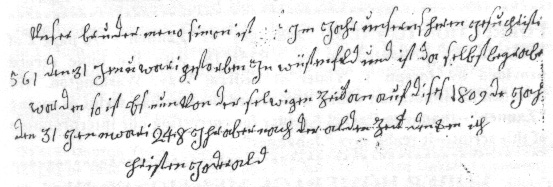 Unser bruder meno simon ist Im Jahr unsers heren Jesu christi
561 den 31 Jenuwari gestorben in wüstenfeld und ist da selbst begraben
worden so ist es nun von der selwigen Zeit an auf dises 1809 de Jahr
den 31 Jenuwari 248 Jahr aber nach der alden Zeit ich
christen